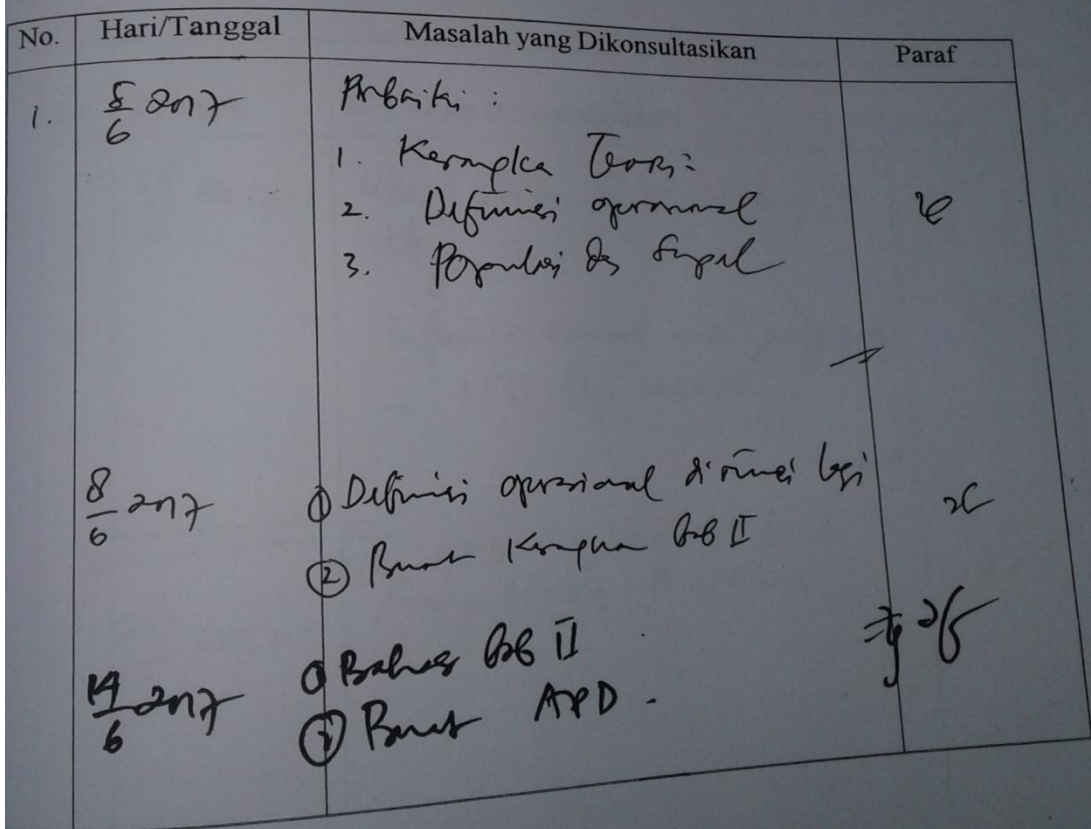 No. Hari/Tanggal Masalah yang Dikonsultasikan Paraf
1. 5/6 2017 Perbaiki :
1. Kerangka Teori
2. Definisi operasional
3. Populasi dan Sampel
8/6 2017 ① Definisi operasional dirinci lagi
② Buat Kerangka Bab II
14/6 2017 ① Bahas Bab II
② Buat APD.